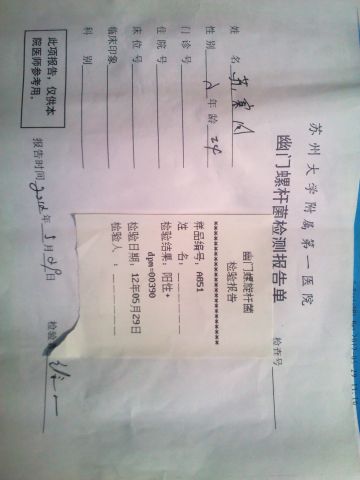 苏州大学附属第一医院
幽门螺杆菌检测报告单
检查号
姓 名
性 别 女 年 龄 24
门诊号
住院号
床位号
临床印象
科 别
幽门螺旋杆菌
检验报告
**********************
样品编号: A051
姓 名: _ _ _ _ _
检验结果: 阳性+
dpm=00390
检验日期: 12年05月29日
检验人: _ _ _ _ _
此项报告,仅供本
院医师参考用。
报告时间 2012 年 5 月 29 日 检验